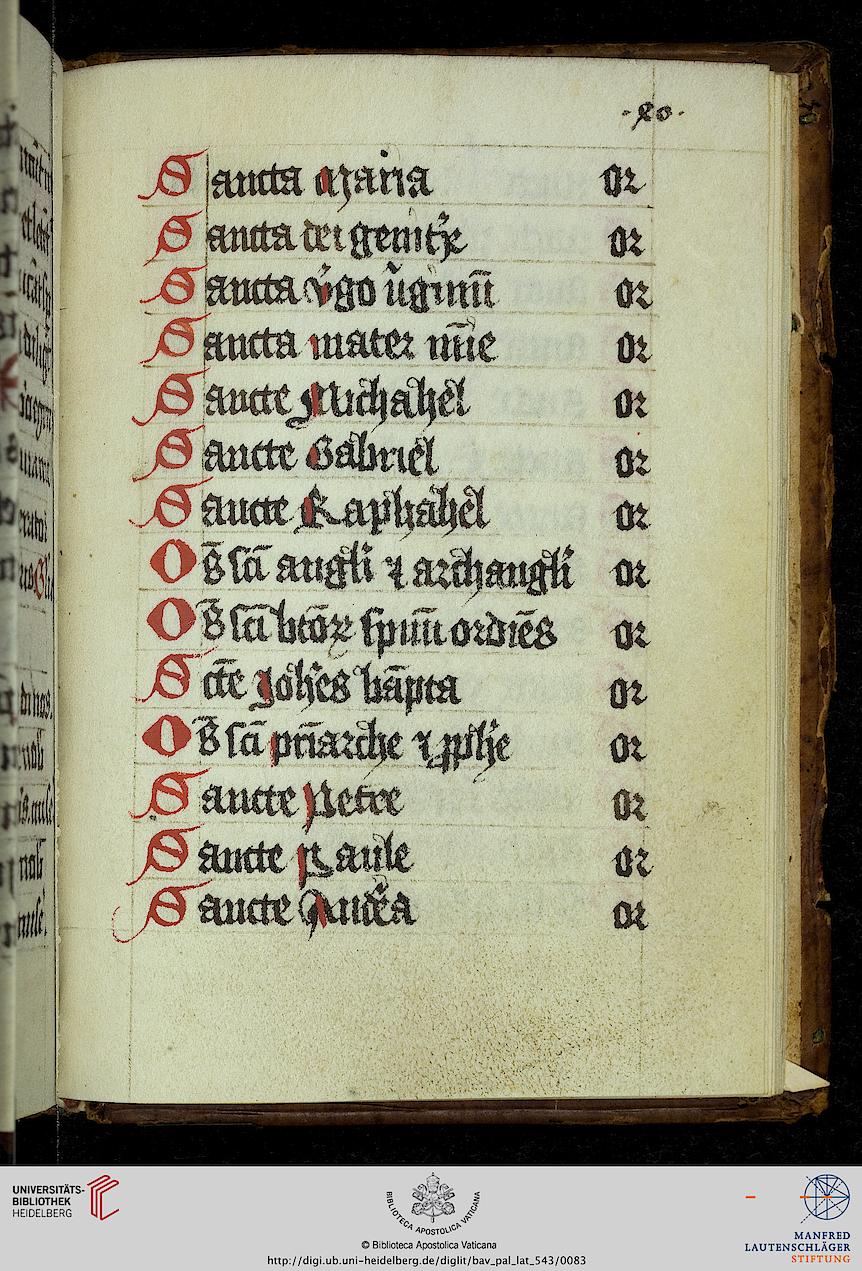 ·80·
Sancta Maria or
Sancta dei genitⁱx or
Sancta v̾go ūginū or
Sancta mater misͥe or
Sancte Michahel or
Sancte Gabriel or
Sancte Raphahel or
Os̄ sc̄i angl̄i ⁊ archangl̄i or
Os̄ sc̄i btōꝝ spūū ordiēs or
Sc̄te Joh̄es bāpta or
Os̄ sc̄i pri̅arche ⁊ ꝓph̄e or
Sancte Petre or
Sancte Paule or
Sancte Andͬea or
UNIVERSITÄTS-
BIBLIOTHEK
HEIDELBERG
BIBLIOTECA APOSTOLICA VATICANA
© Biblioteca Apostolica Vaticana
http://digi.ub.uni-heidelberg.de/diglit/bav_pal_lat_543/0083
MANFRED
LAUTENSCHLÄGER
STIFTUNG